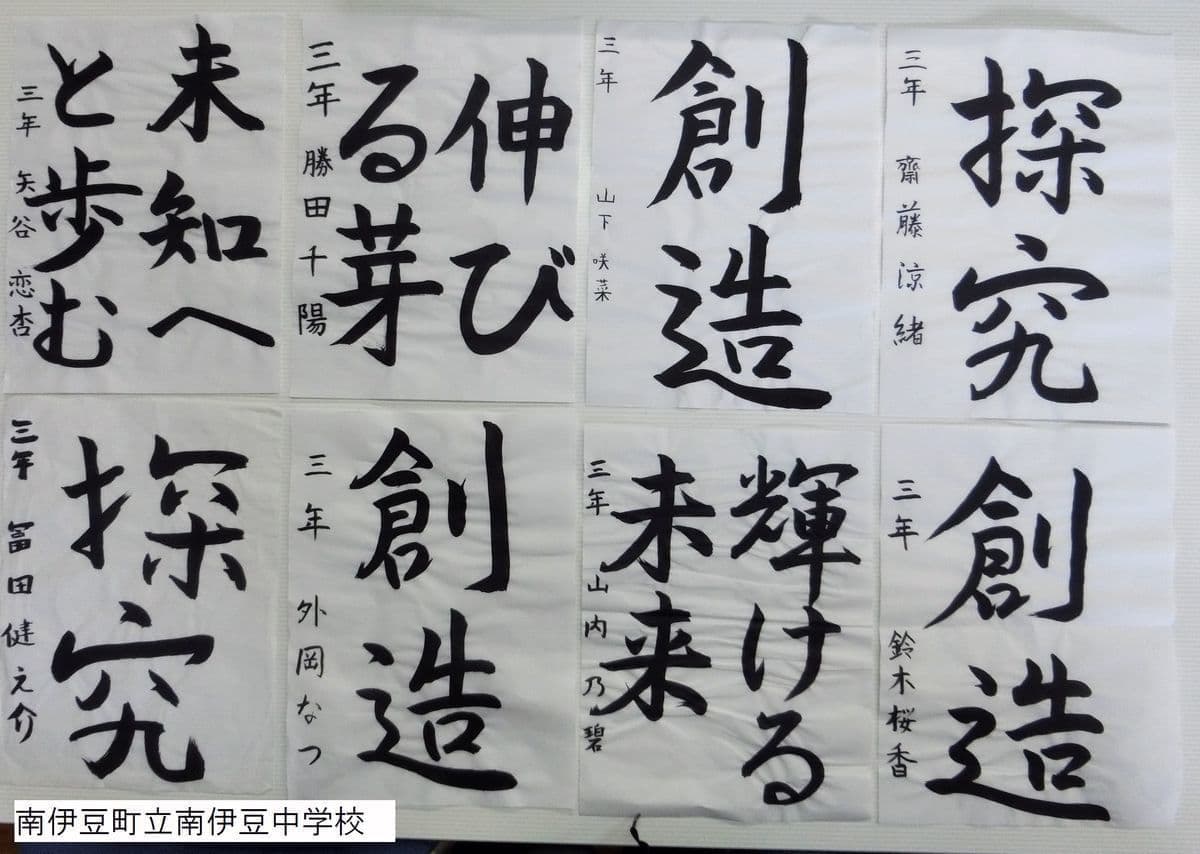 未知へ
と歩む
三年 矢谷 恋杏
伸び
る芽
三年 勝田千陽
創造
三年 山下咲菜
探究
三年 齋藤涼緒
探究
三年 冨田健之介
創造
三年 外岡なつ
輝ける
未来
三年 山内乃碧
創造
三年 鈴木桜香
南伊豆町立南伊豆中学校